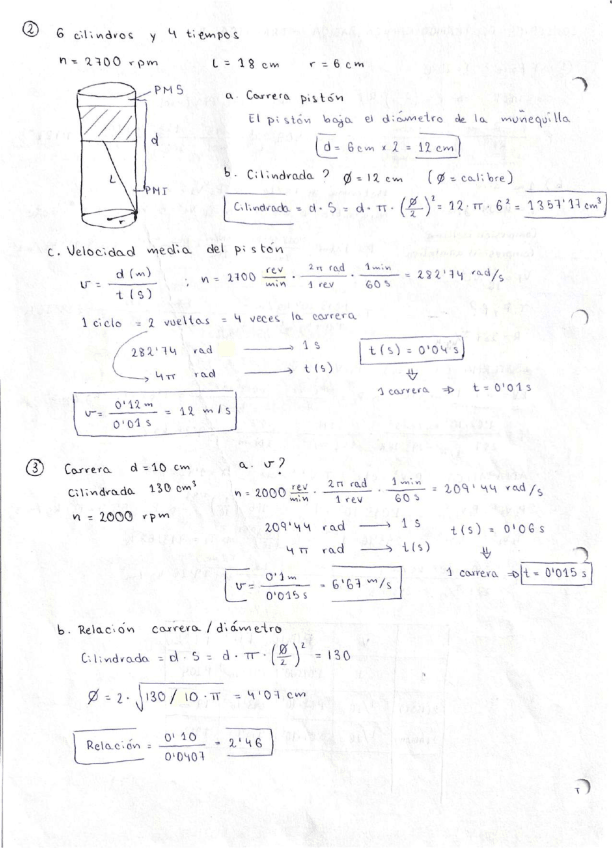 ② 6 cilindros y 4 tiempos
n = 2700 rpm L = 18 cm r = 6 cm
PMS
d
L
PMI
r
a. Carrera pistón
El pistón baja el diámetro de la muñequilla
d = 6 cm × 2 = 12 cm
b. Cilindrada? Ø = 12 cm (Ø = calibre)
Cilindrada = d · S = d · π · (Ø/2)² = 12 · π · 6² = 1357'17 cm³
c. Velocidad media del pistón
v = d (m) / t (s) ; n = 2700 rev/min · 2π rad / 1 rev · 1 min / 60 s = 282'74 rad/s
1 ciclo = 2 vueltas = 4 veces la carrera
282'74 rad → 1 s t(s) = 0'04 s
4π rad → t(s) ⇓
1 carrera ⇒ t = 0'01 s
v = 0'12 m / 0'01 s = 12 m/s
③ Carrera d = 10 cm a. v?
Cilindrada 130 cm³ n = 2000 rev/min · 2π rad / 1 rev · 1 min / 60 s = 209'44 rad/s
n = 2000 rpm
209'44 rad → 1 s t(s) = 0'06 s
4π rad → t(s) ⇓
v = 0'1 m / 0'015 s = 6'67 m/s 1 carrera ⇒ t = 0'015 s
b. Relación carrera / diámetro
Cilindrada = d · S = d · π · (Ø/2)² = 130
Ø = 2 · √(130 / 10 · π) = 4'07 cm
Relación = 0'10 / 0'0407 = 2'46